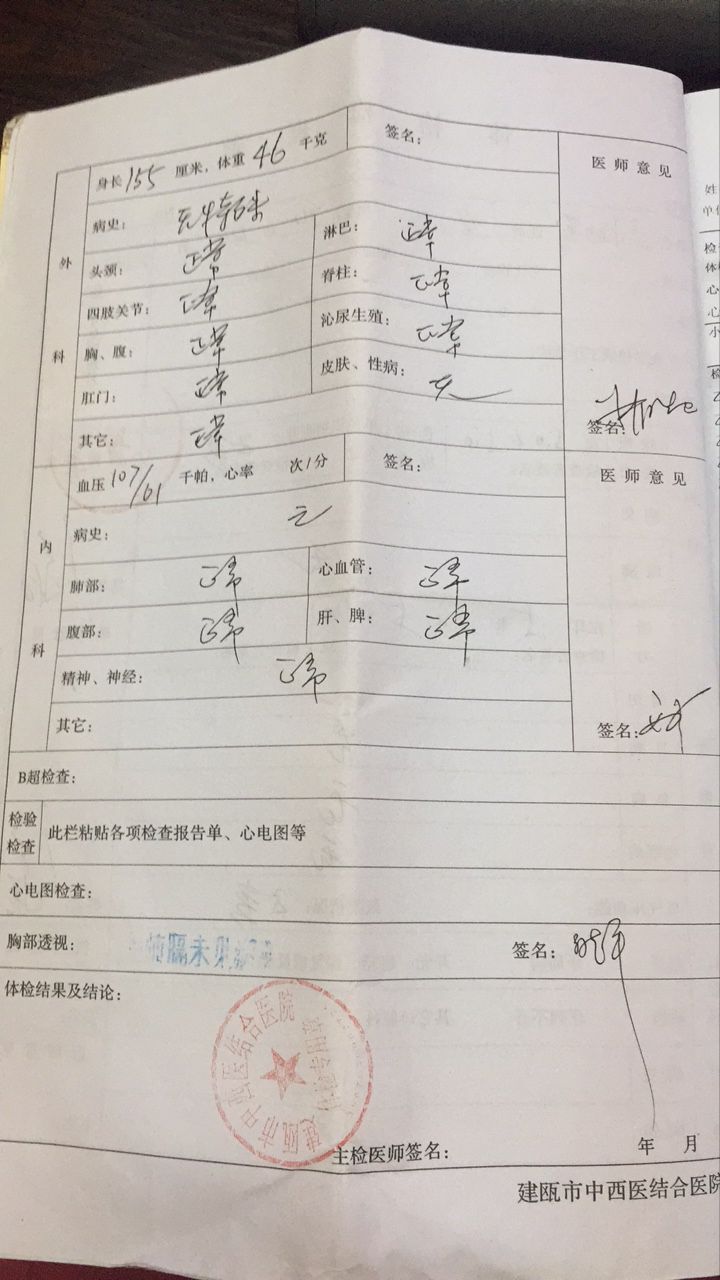 身长 155 厘米，体重 46 千克 签名：
医师意见
外科
病史：
头颈： 正常 淋巴： 正常
四肢关节： 正常 脊柱： 正常
胸、腹： 正常 泌尿生殖： 正常
肛门： 正常 皮肤、性病： 无
其它： 正常
签名：
内科
血压 107/61 千帕，心率 次/分 签名：
医师意见
病史： 无
肺部： 正常 心血管： 正常
腹部： 正常 肝、脾： 正常
精神、神经： 正常
其它：
签名：
B超检查：
检验检查 此栏粘贴各项检查报告单、心电图等
心电图检查：
胸部透视： 膈未见 签名：
体检结果及结论：
建瓯市中西医结合医院
主检医师签名：
年 月
建瓯市中西医结合医院
姓
单位
检
体
心
心
小
检